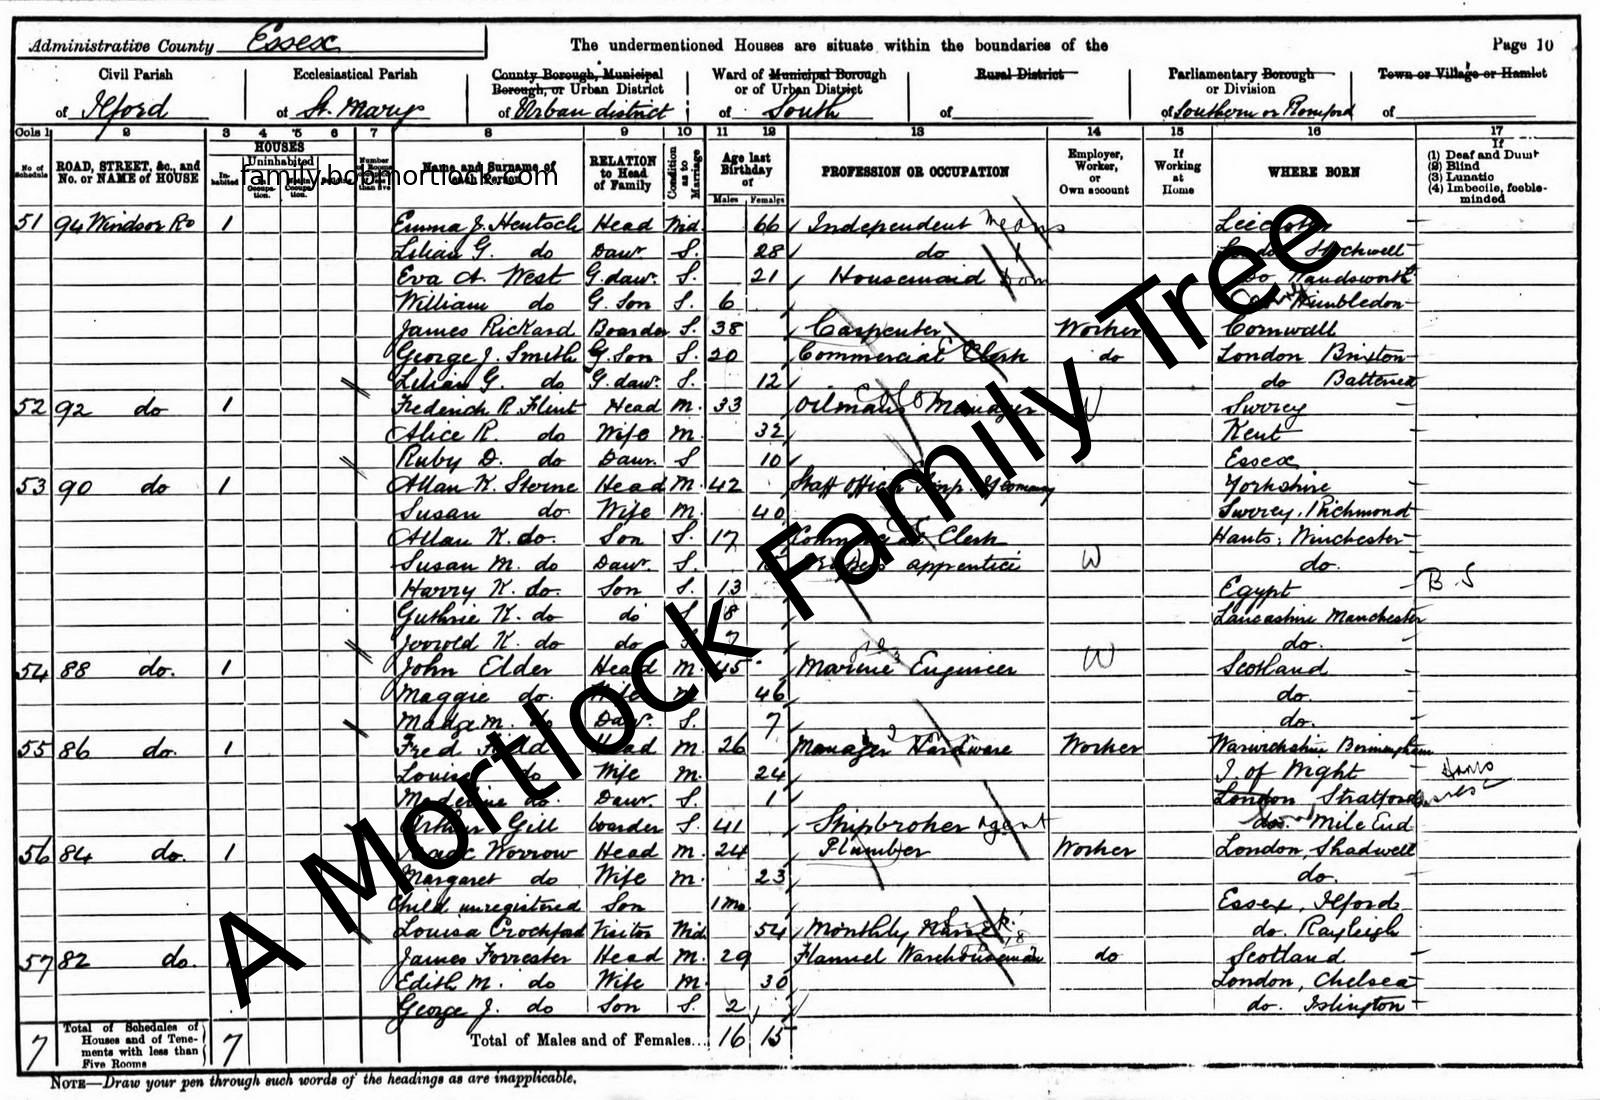 Administrative County Essex The undermentioned Houses are situate within the boundaries of the Page 10
Civil Parish Ecclesiastical Parish County Borough, Municipal Borough, or Urban District Ward of Municipal Borough or of Urban District Rural District Parliamentary Borough or Division Town or Village or Hamlet
of Ilford of St. Marys of Urban district of South of of Southern or Romford of
Cols 1 2 3 4 5 6 7 8 9 10 11 12 13 14 15 16 17
No. of Schedule ROAD, STREET, &c., and No. or NAME of HOUSE HOUSES Inhabited Uninhabited Name and Surname of each Person RELATION to Head of Family Condition as to Marriage Age last Birthday of Males Females PROFESSION OR OCCUPATION Employer, Worker, or Own account If Working at Home WHERE BORN If (1) Deaf and Dumb (2) Blind (3) Lunatic (4) Imbecile, feeble-minded
family.bobmortlock.com
51 94 Windsor Rd 1 Emma J. Hentsch Head Wid. 66 Independent means Leicester
Lilian G. do Daur. S. 28 do London Stockwell
Eva A. West G. daur. S. 21 Housemaid Dom do Wandsworth
William do G. Son S. 6 Wimbledon
James Rickard Boarder S. 38 Carpenter Worker Cornwall
George J. Smith G. Son S. 20 Commercial Clerk do London Brixton
Lilian G. do G. daur. S. 12 do Battersea
52 92 do 1 Frederick R. Flint Head M. 33 Oilmans Manager W Surrey
Alice R. do Wife M. 32 Kent
Ruby D. do Daur. S 10 Essex
53 90 do 1 Allan K. Sterne Head M. 42 Staff Officer Imp. Yeomanry Yorkshire
Susan do Wife M. 40 Surrey, Richmond
Allan K. do. Son S. 17 Commercial Clerk Hants: Winchester
Susan M. do Daur. S. apprentice W do.
Harry K. do. Son S. 13 Egypt B.S
Guthrie K. do do S 8 Lancashire Manchester
Jerrold K. do do S 7 do.
54 88 do. 1 John Elder Head M. 45 Marine Engineer W Scotland
Maggie do. Wife M 46 do.
Madge M. do Daur. S. 7 do.
55 86 do. 1 Fred Head M. 26 Manager Hardware Worker Warwickshire Birmingham
Louisa do Wife M. 24 I. of Wight Hants
Madeline do. Daur. S. 1 London, Stratford Essex
Arthur Gill boarder S. 41 Shipbroker agent do. Mile End
56 84 do. 1 Isaac Worrow Head M. 24 Plumber Worker London, Shadwell
Margaret do Wife M. 23 do.
Child unregistered Son 1 Mo. Essex, Ilford
Louisa Crockford Visitor Wid. 54 Monthly Nurse do. Rayleigh
57 82 do. 1 James Forrester Head M. 29 Flannel Warehouseman do Scotland
Edith M. do Wife M. 30 London, Chelsea
George J. do Son S. 2 do. Islington
7 Total of Schedules of Houses and of Tenements with less than Five Rooms 7 Total of Males and of Females... 16 15
NOTE—Draw your pen through such words of the headings as are inapplicable.
A Mortlock Family Tree